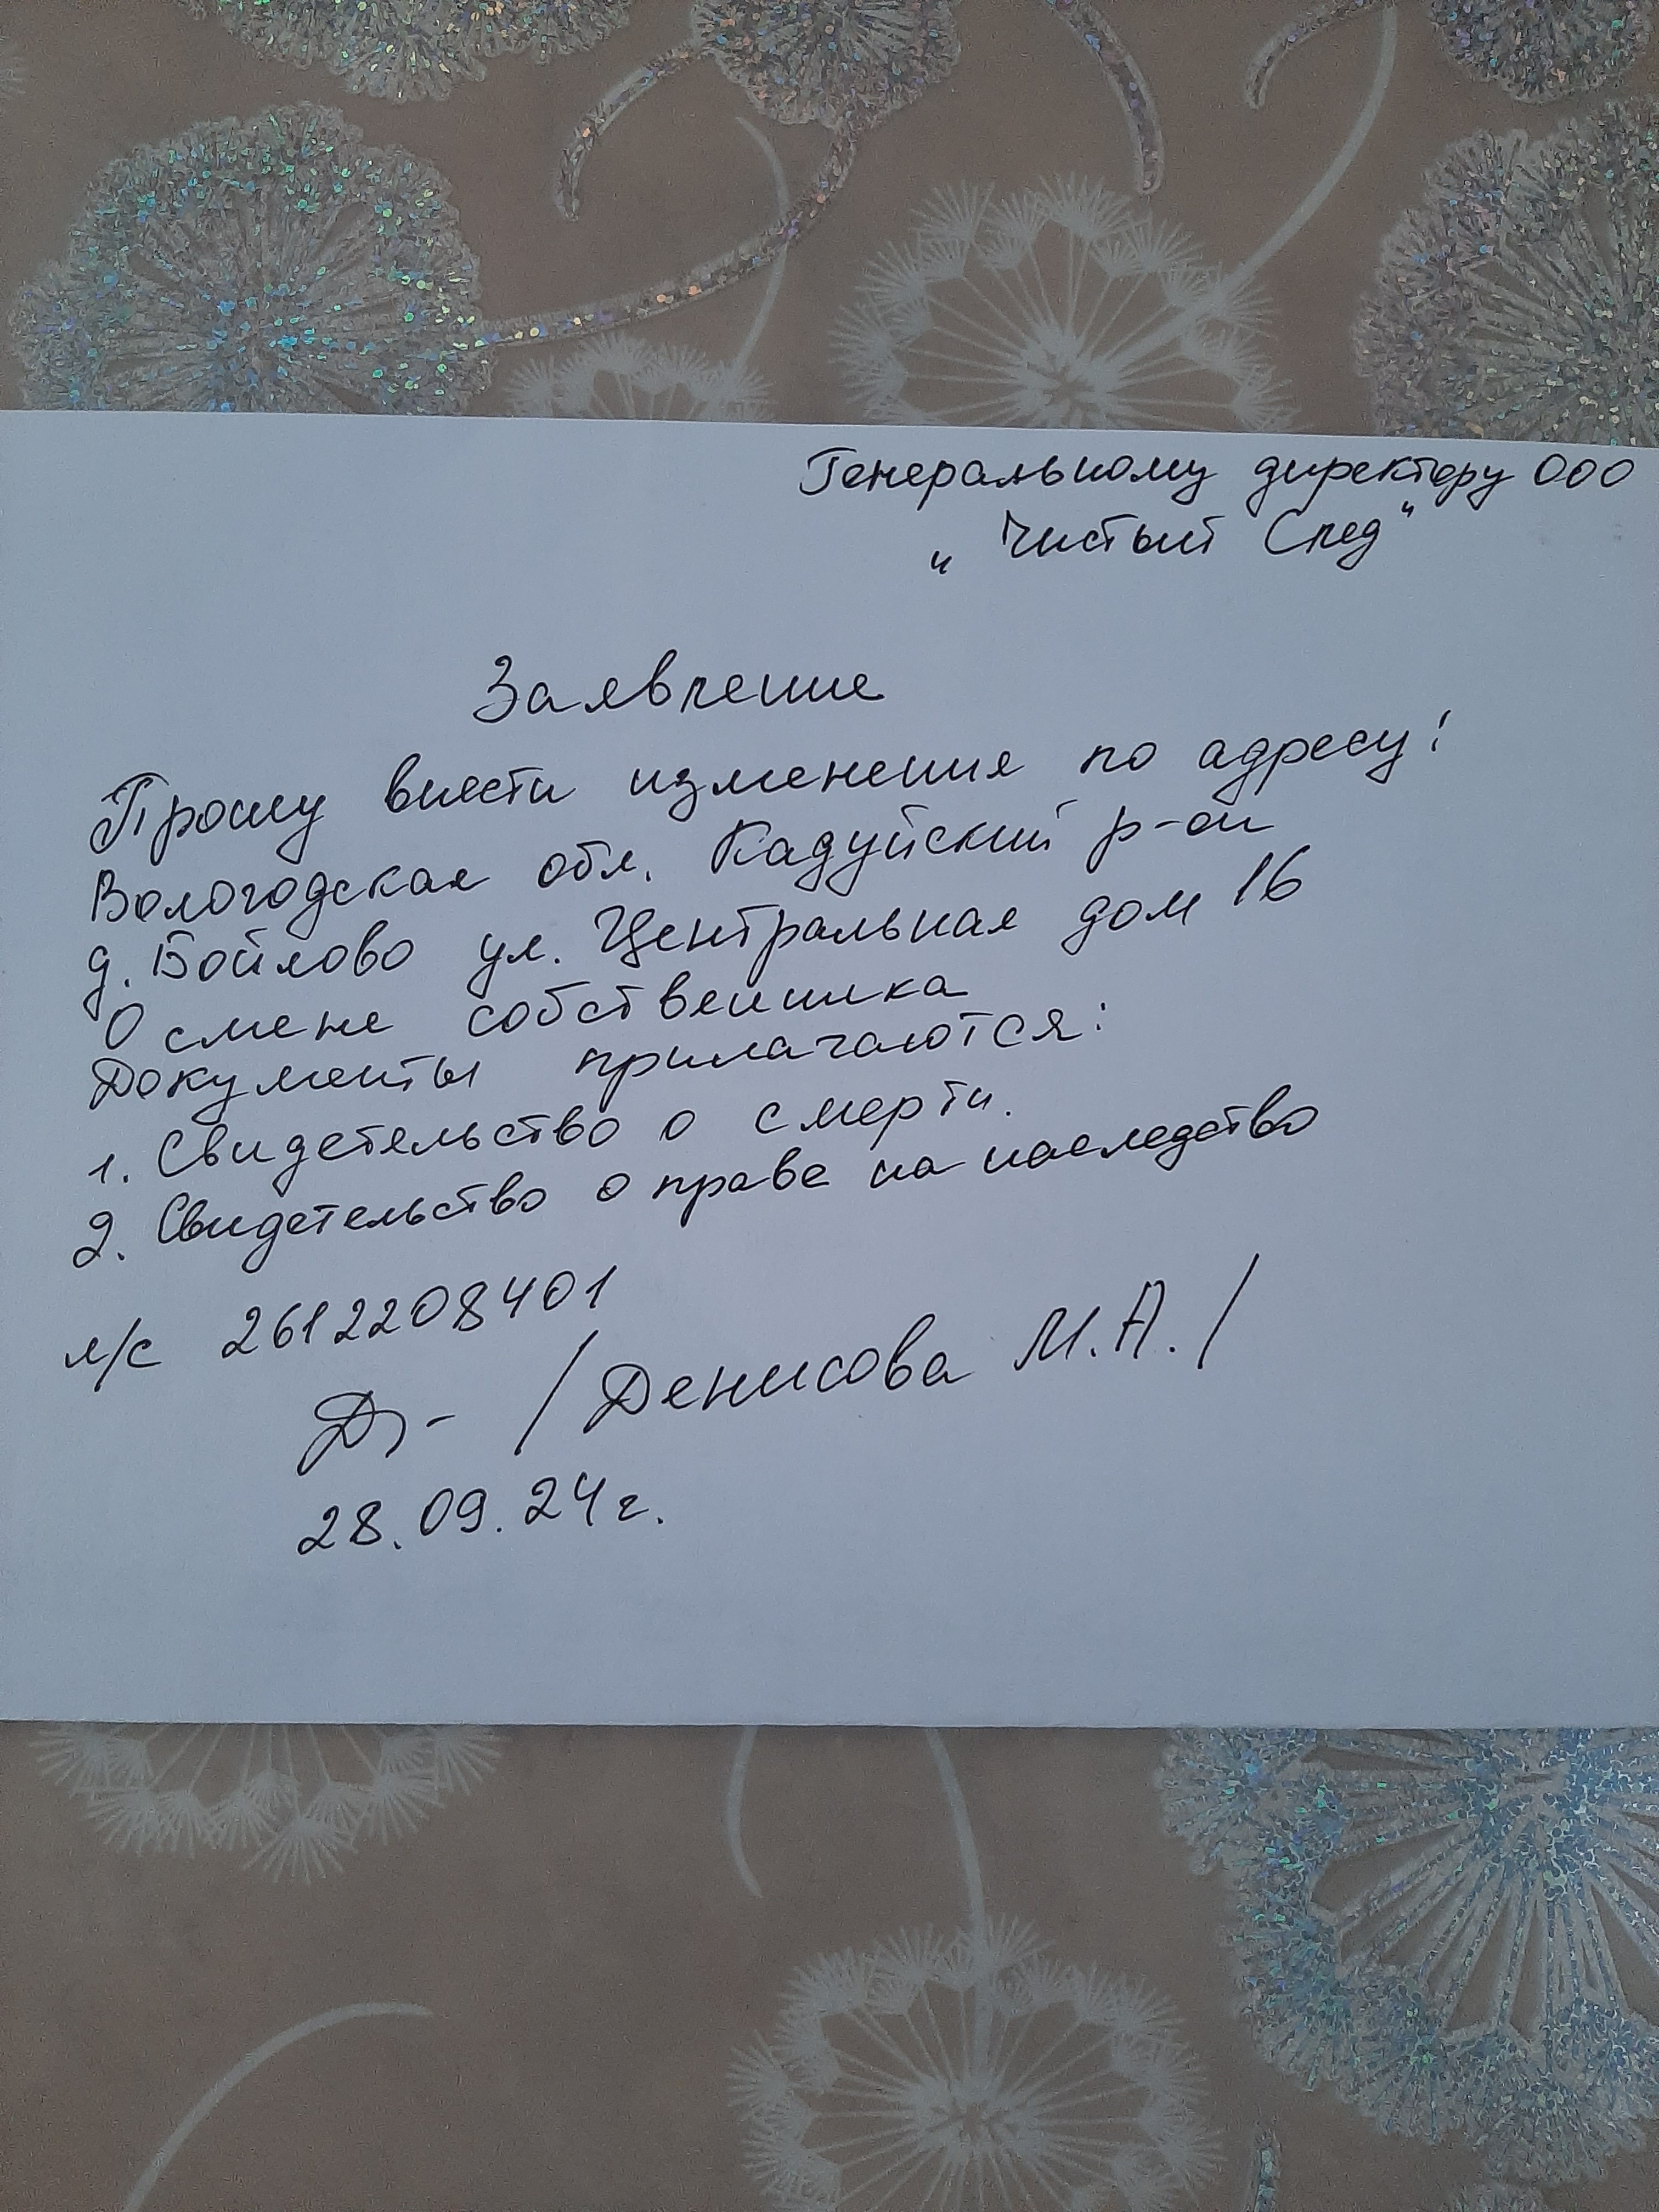 Генеральному директору ООО
„Чистый След"
Заявление
Прошу внести изменения по адресу:
Вологодская обл. Кадуйский р-он
д. Бойлово ул. Центральная дом 16
О смене собственника
Документы прилагаются:
1. Свидетельство о смерти.
2. Свидетельство о праве на наследство
л/с 2612208401
/Денисова М.А./
28.09.24г.